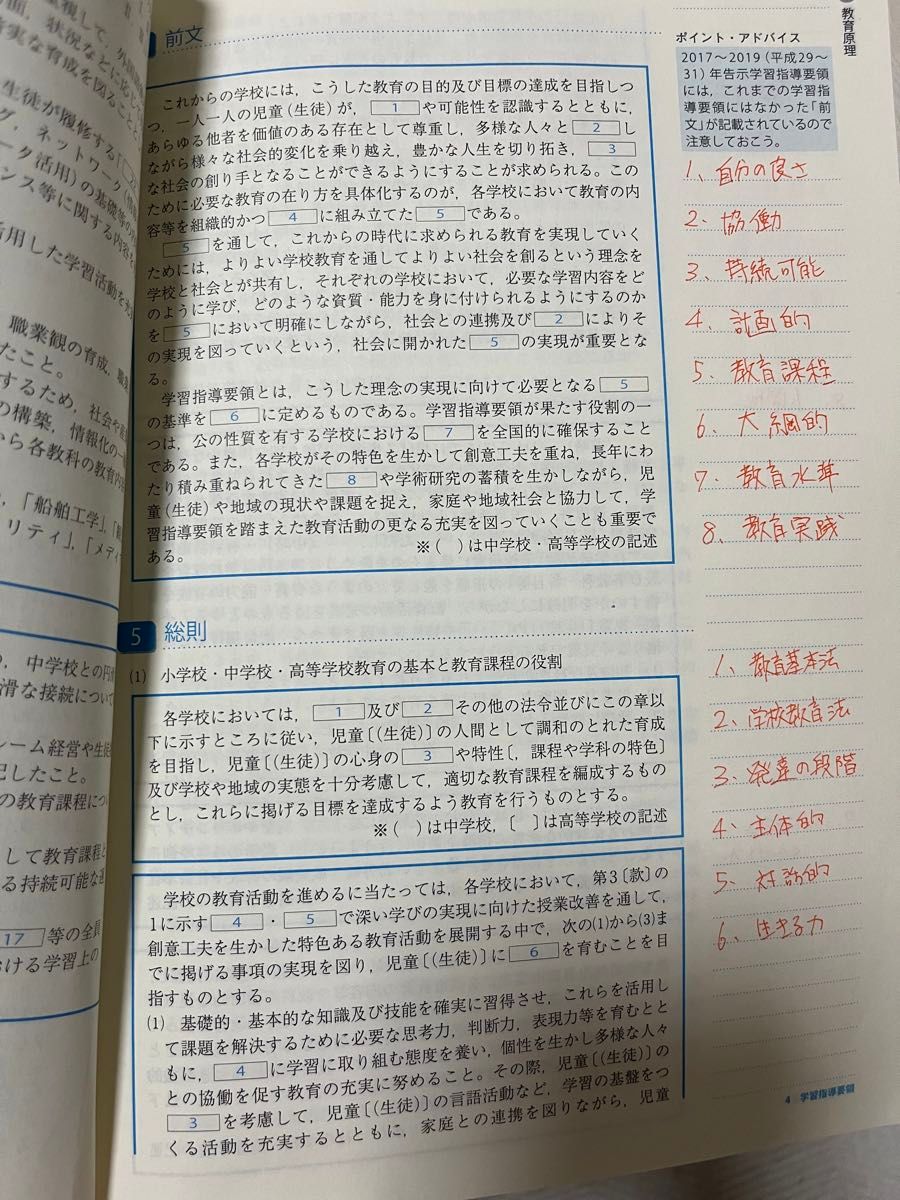 前文
これからの学校には，こうした教育の目的及び目標の達成を目指しつ
つ，一人一人の児童（生徒）が， 1 や可能性を認識するとともに，
あらゆる他者を価値のある存在として尊重し，多様な人々と 2 し
ながら様々な社会的変化を乗り越え，豊かな人生を切り拓き， 3
な社会の創り手となることができるようにすることが求められる。この
ために必要な教育の在り方を具体化するのが，各学校において教育の内
容等を組織的かつ 4 に組み立てた 5 である。
5 を通して，これからの時代に求められる教育を実現していく
ためには，よりよい学校教育を通してよりよい社会を創るという理念を
学校と社会とが共有し，それぞれの学校において，必要な学習内容をど
のように学び，どのような資質・能力を身に付けられるようにするのか
を 5 において明確にしながら，社会との連携及び 2 によりそ
の実現を図っていくという，社会に開かれた 5 の実現が重要とな
る。
学習指導要領とは，こうした理念の実現に向けて必要となる 5
の基準を 6 に定めるものである。学習指導要領が果たす役割の一
つは，公の性質を有する学校における 7 を全国的に確保すること
である。また，各学校がその特色を生かして創意工夫を重ね，長年にわ
たり積み重ねられてきた 8 や学術研究の蓄積を生かしながら，児
童（生徒）や地域の現状や課題を捉え，家庭や地域社会と協力して，学
習指導要領を踏まえた教育活動の更なる充実を図っていくことも重要で
ある。
※（ ）は中学校・高等学校の記述
5 総則
(1) 小学校・中学校・高等学校教育の基本と教育課程の役割
各学校においては， 1 及び 2 その他の法令並びにこの章以
下に示すところに従い，児童〔（生徒）〕の人間として調和のとれた育成
を目指し，児童〔（生徒）〕の心身の 3 や特性〔，課程や学科の特色〕
及び学校や地域の実態を十分考慮して，適切な教育課程を編成するもの
とし，これらに掲げる目標を達成するよう教育を行うものとする。
※（ ）は中学校，〔 〕は高等学校の記述
学校の教育活動を進めるに当たっては，各学校において，第3〔款〕の
1に示す 4 ・ 5 で深い学びの実現に向けた授業改善を通して，
創意工夫を生かした特色ある教育活動を展開する中で，次の(1)から(3)ま
でに掲げる事項の実現を図り，児童〔（生徒）〕に 6 を育むことを目
指すものとする。
(1) 基礎的・基本的な知識及び技能を確実に習得させ，これらを活用し
て課題を解決するために必要な思考力，判断力，表現力等を育むとと
もに， 4 に学習に取り組む態度を養い，個性を生かし多様な人々
との協働を促す教育の充実に努めること。その際，児童〔（生徒）〕の
3 を考慮して，児童〔（生徒）〕の言語活動など，学習の基盤をつ
くる活動を充実するとともに，家庭との連携を図りながら，児童
教育原理
ポイント・アドバイス
2017～2019（平成29～
31）年告示学習指導要領
には，これまでの学習指
導要領にはなかった「前
文」が記載されているので
注意しておこう。
1、自分の良さ
2、協働
3、持続可能
4、計画的
5、教育課程
6、大綱的
7、教育水準
8、教育実践
1、教育基本法
2、学校教育法
3、発達の段階
4、主体的
5、対話的
6、生きる力
4
生徒が履修する「
グ，ネットワーク
ータ活用）の基礎等の
ンス等に関する内容を
活用した学習活動を充
職業観の育成，職
たこと。
するため，社会や産
の構築，情報化の
から各教科の教育内
，「船舶工学」，「
リティ」，「メディ
中学校との円
滑な接続につい
レーム経営や生
記したこと。
の教育課程につ
して教育課程と
る持続可能な
17 等の全
おける学習上の